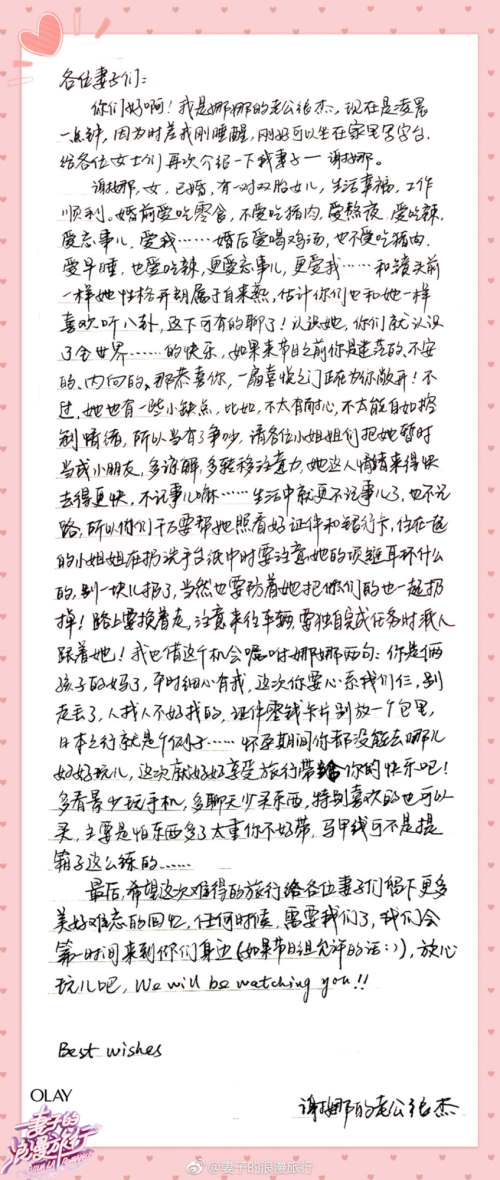 各位妻子们：
你们好啊！我是娜娜的老公张杰，现在是凌晨
一点钟，因为时差我刚睡醒，刚好可以坐在家里写字台
给各位女士们再次介绍一下我妻子——谢娜。
谢娜，女，已婚，有一对双胞女儿，生活幸福，工作
顺利。婚前爱吃零食，不爱吃猪肉，爱熬夜，爱吃辣，
爱忘事儿，爱我……婚后爱喝鸡汤，也不爱吃猪肉，
爱早睡，也爱吃辣，更爱忘事儿，更爱我……和镜头前
一样她性格开朗属于自来熟，估计你们也和她一样
喜欢听八卦，这下可有的聊了！认识她，你们就认识
了全世界……的快乐，如果来节目之前你是迷茫的、不安
的、内向的，那恭喜你，一扇喜悦之门正在为你敞开！不
过，她也有一些小缺点，比如，不太有耐心，不太能自如控
制情绪，所以当有了争吵，请各位小姐姐们把她暂时
当成小朋友，多谅解，多转移注意力，她这人情绪来得快
去得更快，不记事儿嘛……生活中就更不记事儿了，也不认
路，所以你们千万要帮她照看好证件和银行卡，住在一起
的小姐姐在扔洗手台纸巾时要注意她的项链耳环什么
的，别一块儿扔了，当然也要防着她把你们的也一起扔
掉！路上要挨着走，注意来往车辆，要独自完成任务时找人
跟着她！我也借这个机会嘱咐娜娜两句：你是俩
孩子的妈了，平时细心有我，这次你要心系我们仨，别
走丢了，人找人不好找的，证件零钱卡片别放一个包里，
日本之行就是个例子……怀孕期间你都没能去哪儿
好好玩儿，这次就好好享受旅行带给你的快乐吧！
多看景少玩手机，多聊天少买东西，特别喜欢的也可以
买，主要是怕东西多了太重你不好带，马甲线可不是提
箱子这么练的……
最后，希望这次难得的旅行给各位妻子们留下更多
美好难忘的回忆，任何时候，需要我们了，我们会
第一时间来到你们身边（如果节目组允许的话：）），放心
玩儿吧，We will be watching you!!
Best wishes
谢娜的老公张杰
OLAY
妻子的
浪漫旅行
@妻子的浪漫旅行